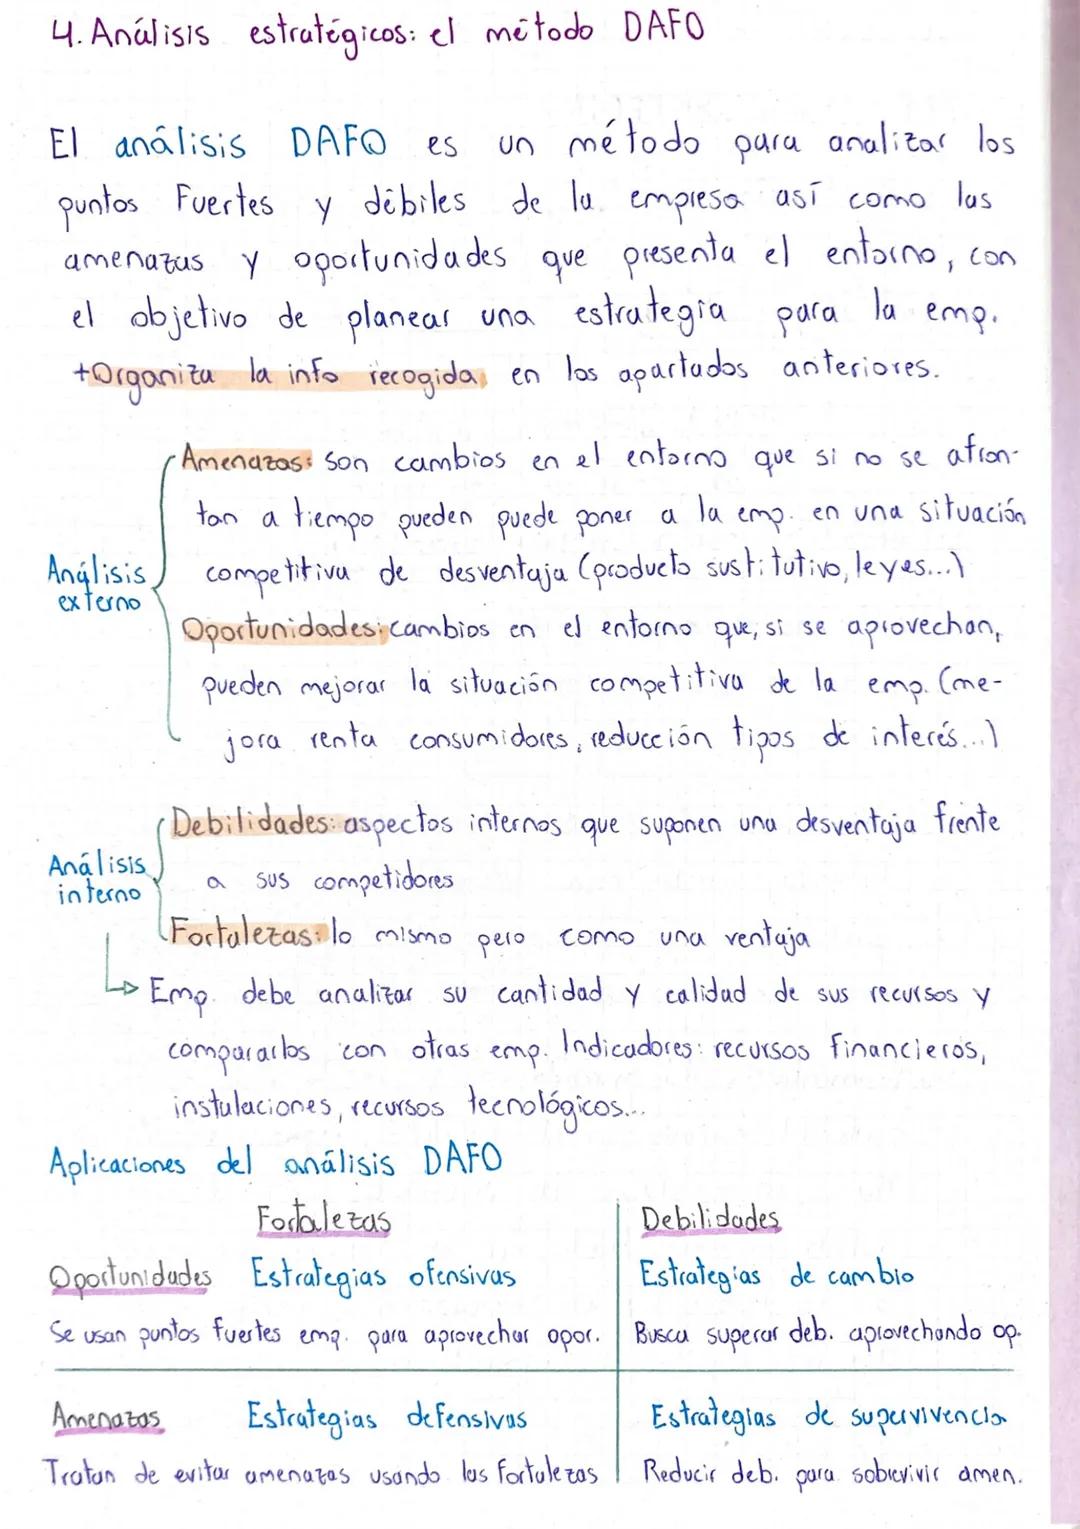 4. Análisis estratégicos: el método DAFO
El análisis DAFO es un método para analizar los
puntos Fuertes y débiles de la empresa así como las
amenazas y oportunidades que presenta el entorno, con
el objetivo de planear una estrategia para la emp.
+Organiza la info recogida en los apartados anteriores.
Amenazas: son cambios en el entorno que si no se afron-
tan a tiempo pueden puede poner a la emp. en una situación
competitiva de desventaja (producto sustitutivo, leyes...)
Análisis
externo
Oportunidades: cambios en el entorno que, si se aprovechan,
pueden mejorar la situación competitiva de la emp. (me-
jora renta consumidores, reducción tipos de interés...)
Debilidades: aspectos internos que suponen una desventaja frente
a sus competidores
Análisis
interno
Fortalezas: lo mismo pero como una ventaja
Emp. debe analizar su cantidad y calidad de sus recursos y
compararlos con otras emp. Indicadores: recursos financieros,
instalaciones, recursos tecnológicos...
Aplicaciones del análisis DAFO
Fortalezas Debilidades
Oportunidades Estrategias ofensivas Estrategias de cambio
Se usan puntos fuertes emp. para aprovechar opor. Busca superar deb. aprovechando op.
Amenazas Estrategias defensivas Estrategias de supervivencia
Tratan de evitar amenazas usando las fortalezas Reducir deb. para sobrevivir amen.